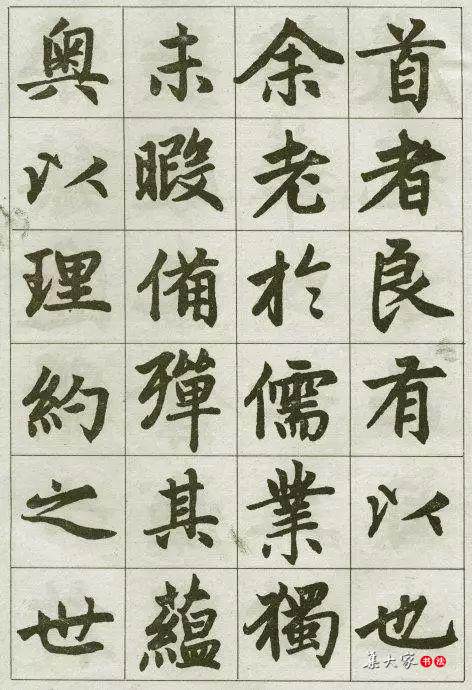 首者良有以也
余老於儒業獨
未暇備彈其蘊
奥以理約之世
集大家书法